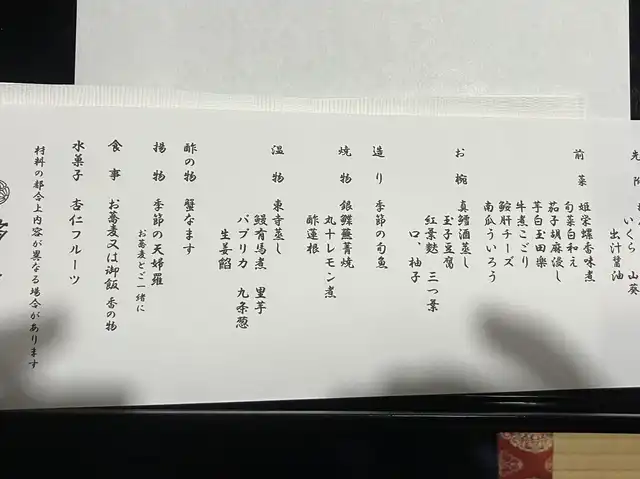 先附
いくら 山葵
出汁醤油
前菜 姫栄螺香味煮
旬菜白和え
茄子胡麻浸し
芋白玉田楽
牛煮こごり
鮟肝チーズ
南瓜ういろう
お椀 真鱈酒蒸し
玉子豆腐
紅葉麩 三つ葉
口、柚子
造り 季節の旬魚
焼物 銀鱈蕪菁焼
丸十レモン煮
酢蓮根
温物 東寺蒸し
鰻有馬煮 里芋
パプリカ 九条葱
生姜餡
酢の物 蟹なます
揚物 季節の天婦羅
お蕎麦とご一緒に
食事 お蕎麦又は御飯 香の物
水菓子 杏仁フルーツ
材料の都合上内容が異なる場合があります